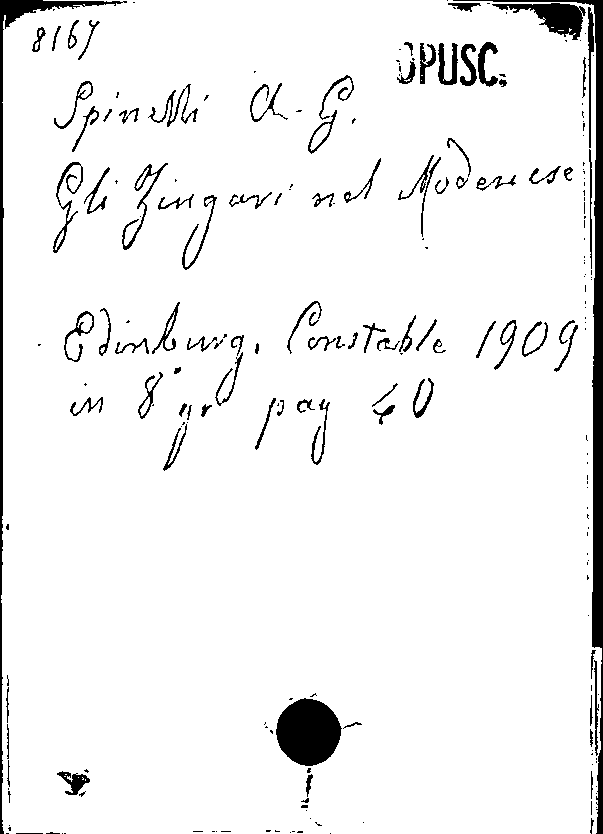 8167
OPUSC.
Spinelli A. G.
Gli Zingari nel Modenese
Edinburg. Constable 1909
in 8° gr pag 40